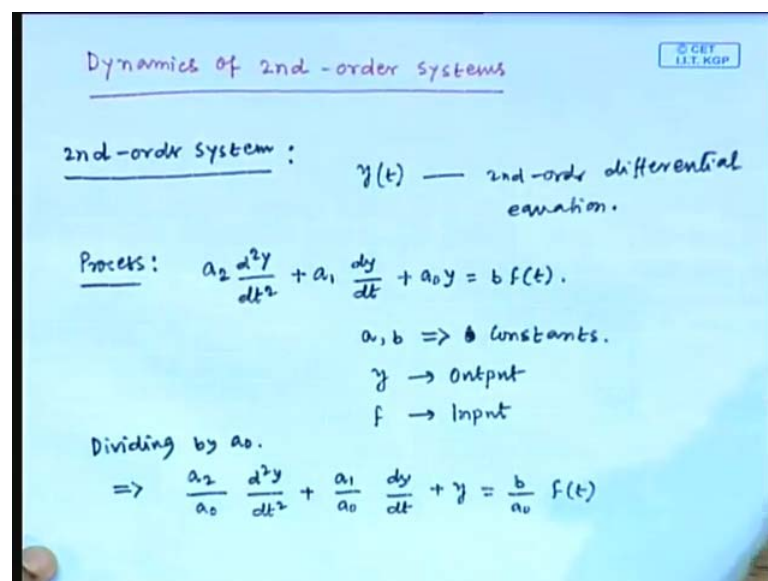 Dynamics of 2nd-order systems
© CET
I.I.T. KGP
2nd-order system :
y(t) — 2nd-order differential
equation.
Process : a₂ d²y/dt² + a₁ dy/dt + a₀y = b f(t).
a, b => constants.
y → Output
f → Input
Dividing by a₀.
=> a₂/a₀ d²y/dt² + a₁/a₀ dy/dt + y = b/a₀ f(t)